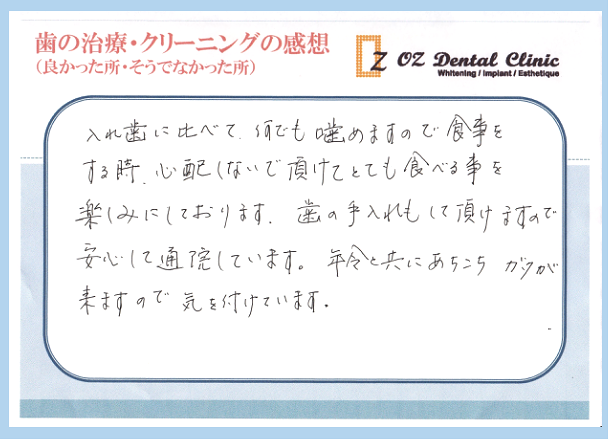 歯の治療・クリーニングの感想
(良かった所・そうでなかった所)
OZ Dental Clinic
Whitening / Implant / Esthetique
入れ歯に比べて、何でも噛めますので食事を
する時、心配しないで頂けてとても食べる事を
楽しみにしております。歯の手入れもして頂けますので
安心して通院しています。年令と共にあちこちガタが
来ますので気を付けています。